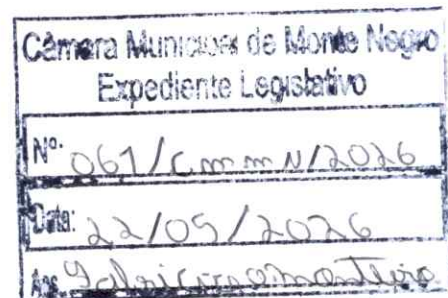 Câmara Municipal de Monte Negro
Expediente Legislativo
Nº. 061/CMMN/2026
Data: 22/05/2026
Ass.